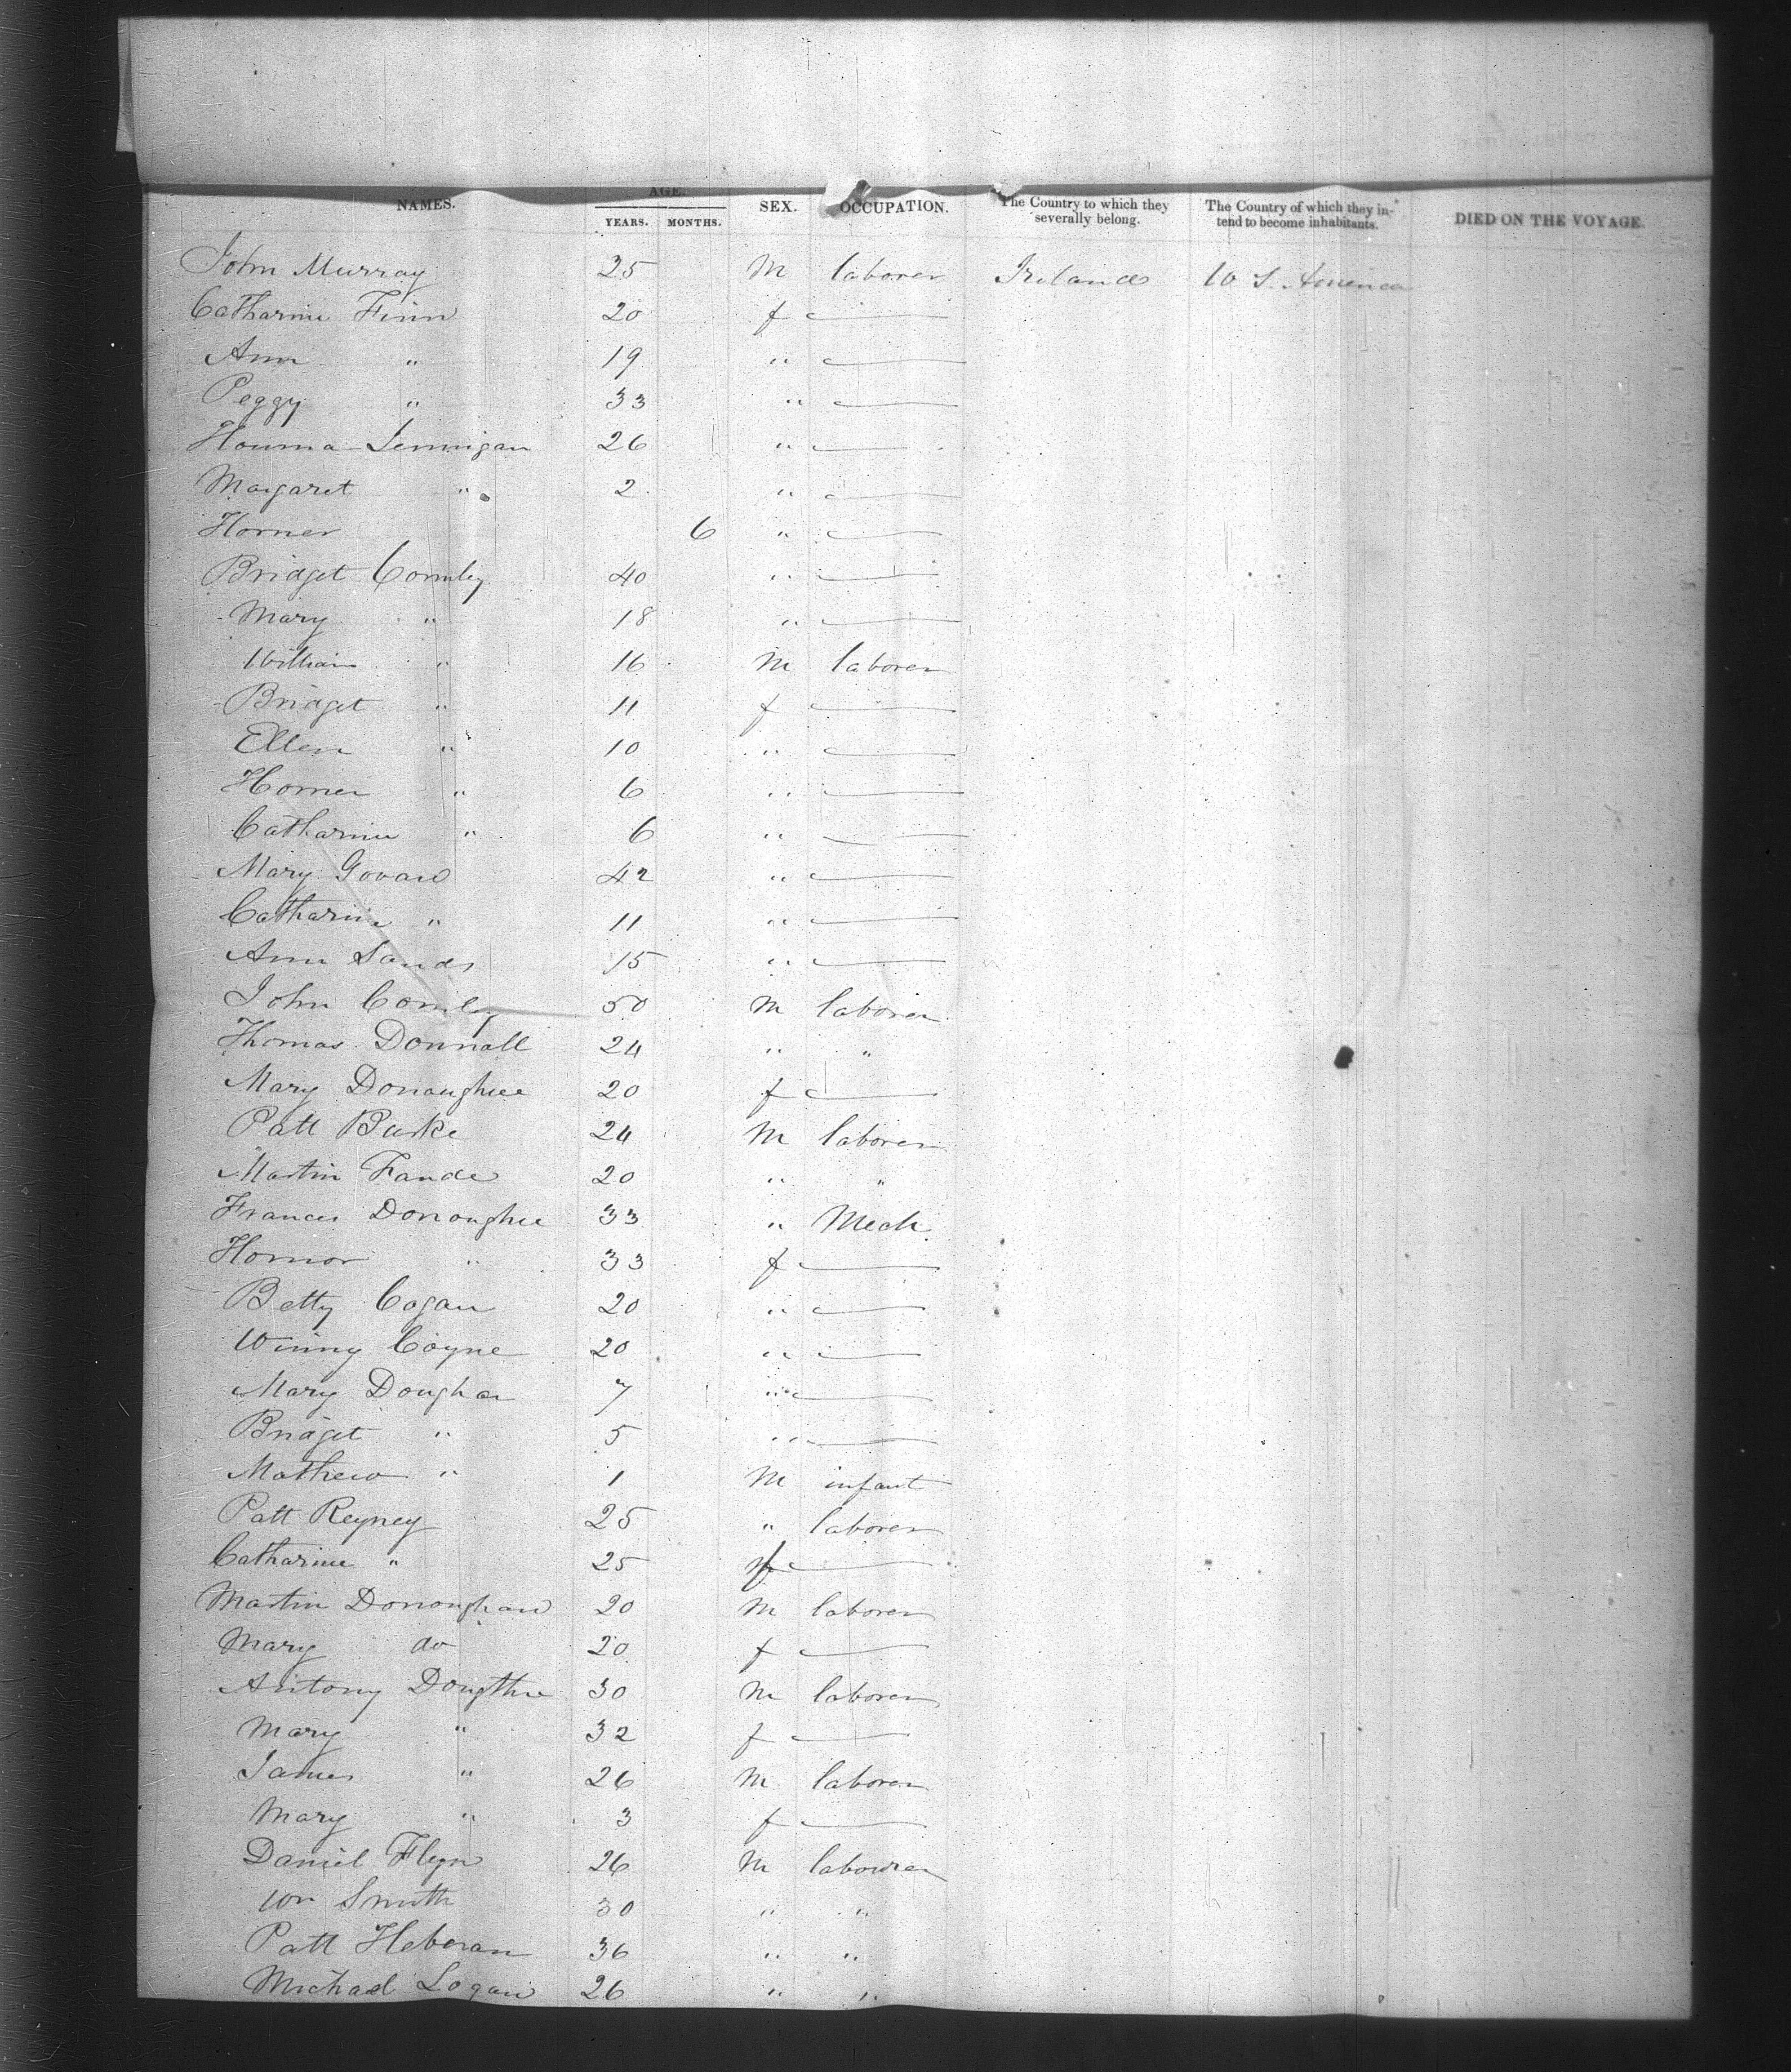 AGE.
NAMES. YEARS. MONTHS. SEX. OCCUPATION. The Country to which they severally belong. The Country of which they in-tend to become inhabitants. DIED ON THE VOYAGE.
John Murray 25 M laborer Ireland U S. America
Catharine Finn 20 f
Ann " 19 "
Peggy " 33 "
Jennigan 26 "
Margaret " 2 "
Horner 6 "
Bridget Comley 40 "
Mary " 18 "
William " 16 M laborer
Bridget " 11 f
Ellen " 10 "
Horner " 6 "
Catharine " 6 "
Mary Govard 42 "
Catharine " 11 "
Ann Sands 15 "
John Comley 50 M laborer
Thomas Donnall 24 " "
Mary Donaughue 20 f
Patt Burke 24 M laborer
Martin Fande 20 " "
Frances Donoughue 33 " Mech.
Hornor " 33 f
Betty Cogan 20 "
Winny Coyne 20 "
Mary Doughan 7 "
Bridget " 5 "
Mathew " 1 M infant
Patt Reyney 25 " laborer
Catharine " 25 f
Martin Donoughan 20 M laborer
Mary do 20 f
Antony Dougthue 30 M laborer
Mary " 32 f
James " 26 M laborer
Mary " 3 f
Daniel Flyn 26 M labourer
Wm Smith 30 " "
Patt Heberan 36 " "
Michael Logan 26 " "